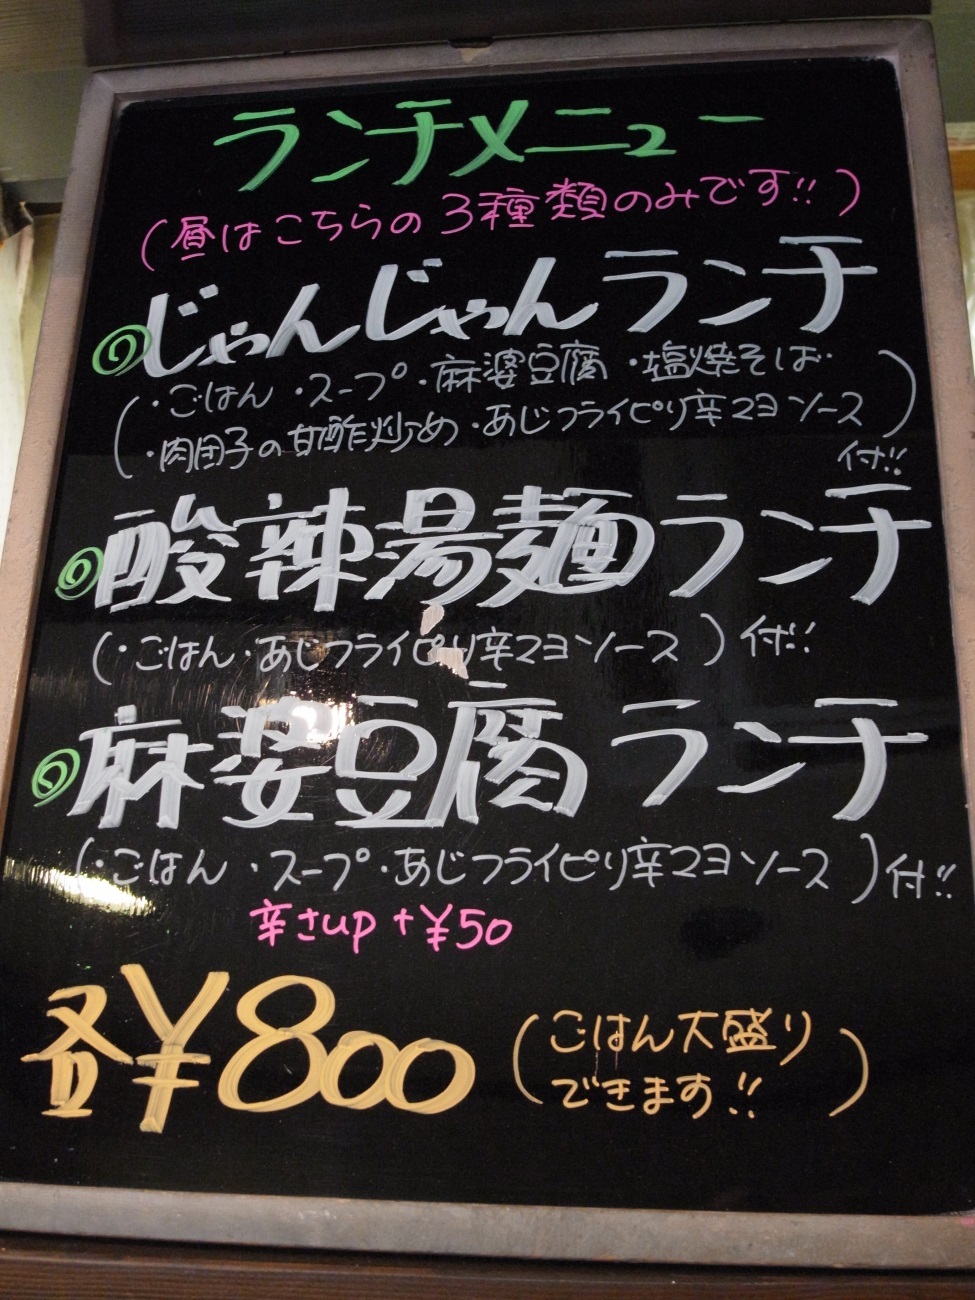 ランチメニュー
(昼はこちらの3種類のみです!!)
じゃんじゃんランチ
(・ごはん・スープ・麻婆豆腐・塩焼そば
・肉団子の甘酢炒め・あじフライピリ辛マヨソース)
付!!
酸辣湯麺ランチ
(・ごはん・あじフライピリ辛マヨソース)付!!
麻婆豆腐ランチ
(・ごはん・スープ・あじフライピリ辛マヨソース)付!!
辛さup+¥50
各¥800
(ごはん大盛り
できます!!)